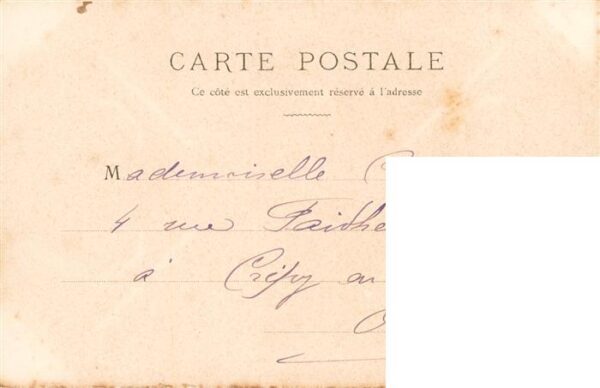 CARTE POSTALE
Ce côté est exclusivement réservé à l'adresse
Mademoiselle
4 rue
à Crépy en